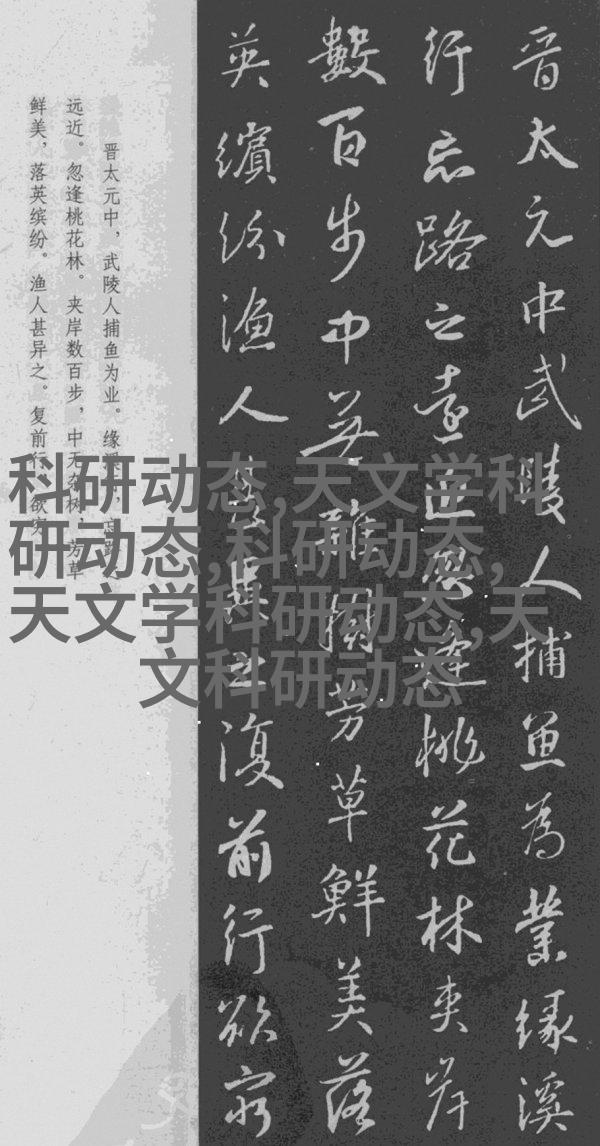 晋太元中武陵人捕鱼為業缘溪
行忘路之遠近忽逢桃花林夾岸
數百步中無雜樹芳草鮮美落
英繽纷渔人甚異之復前行欲窮
晋太元中，武陵人捕鱼为业。缘溪行，忘路之
远近。忽逢桃花林。夹岸数百步，中无杂树，芳草
鲜美，落英缤纷。渔人甚异之。复前行，欲穷
科研动态,天文学科
研动态,科研动态,
天文学科研动态,天
文科研动态